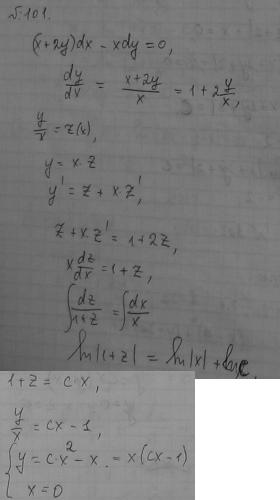 №101.
(x+2y)dx - xdy = 0,
dy/dx = (x+2y)/x = 1+2 y/x,
y/x = z(x),
y = x·z
y' = z + x·z',
z + x·z' = 1+2z,
x dz/dx = 1+z,
∫ dz/(1+z) = ∫ dx/x
ln|1+z| = ln|x| + ln c.
1+z = cx,
y/x = cx - 1,
{ y = c·x² - x. = x(cx-1)
x = 0